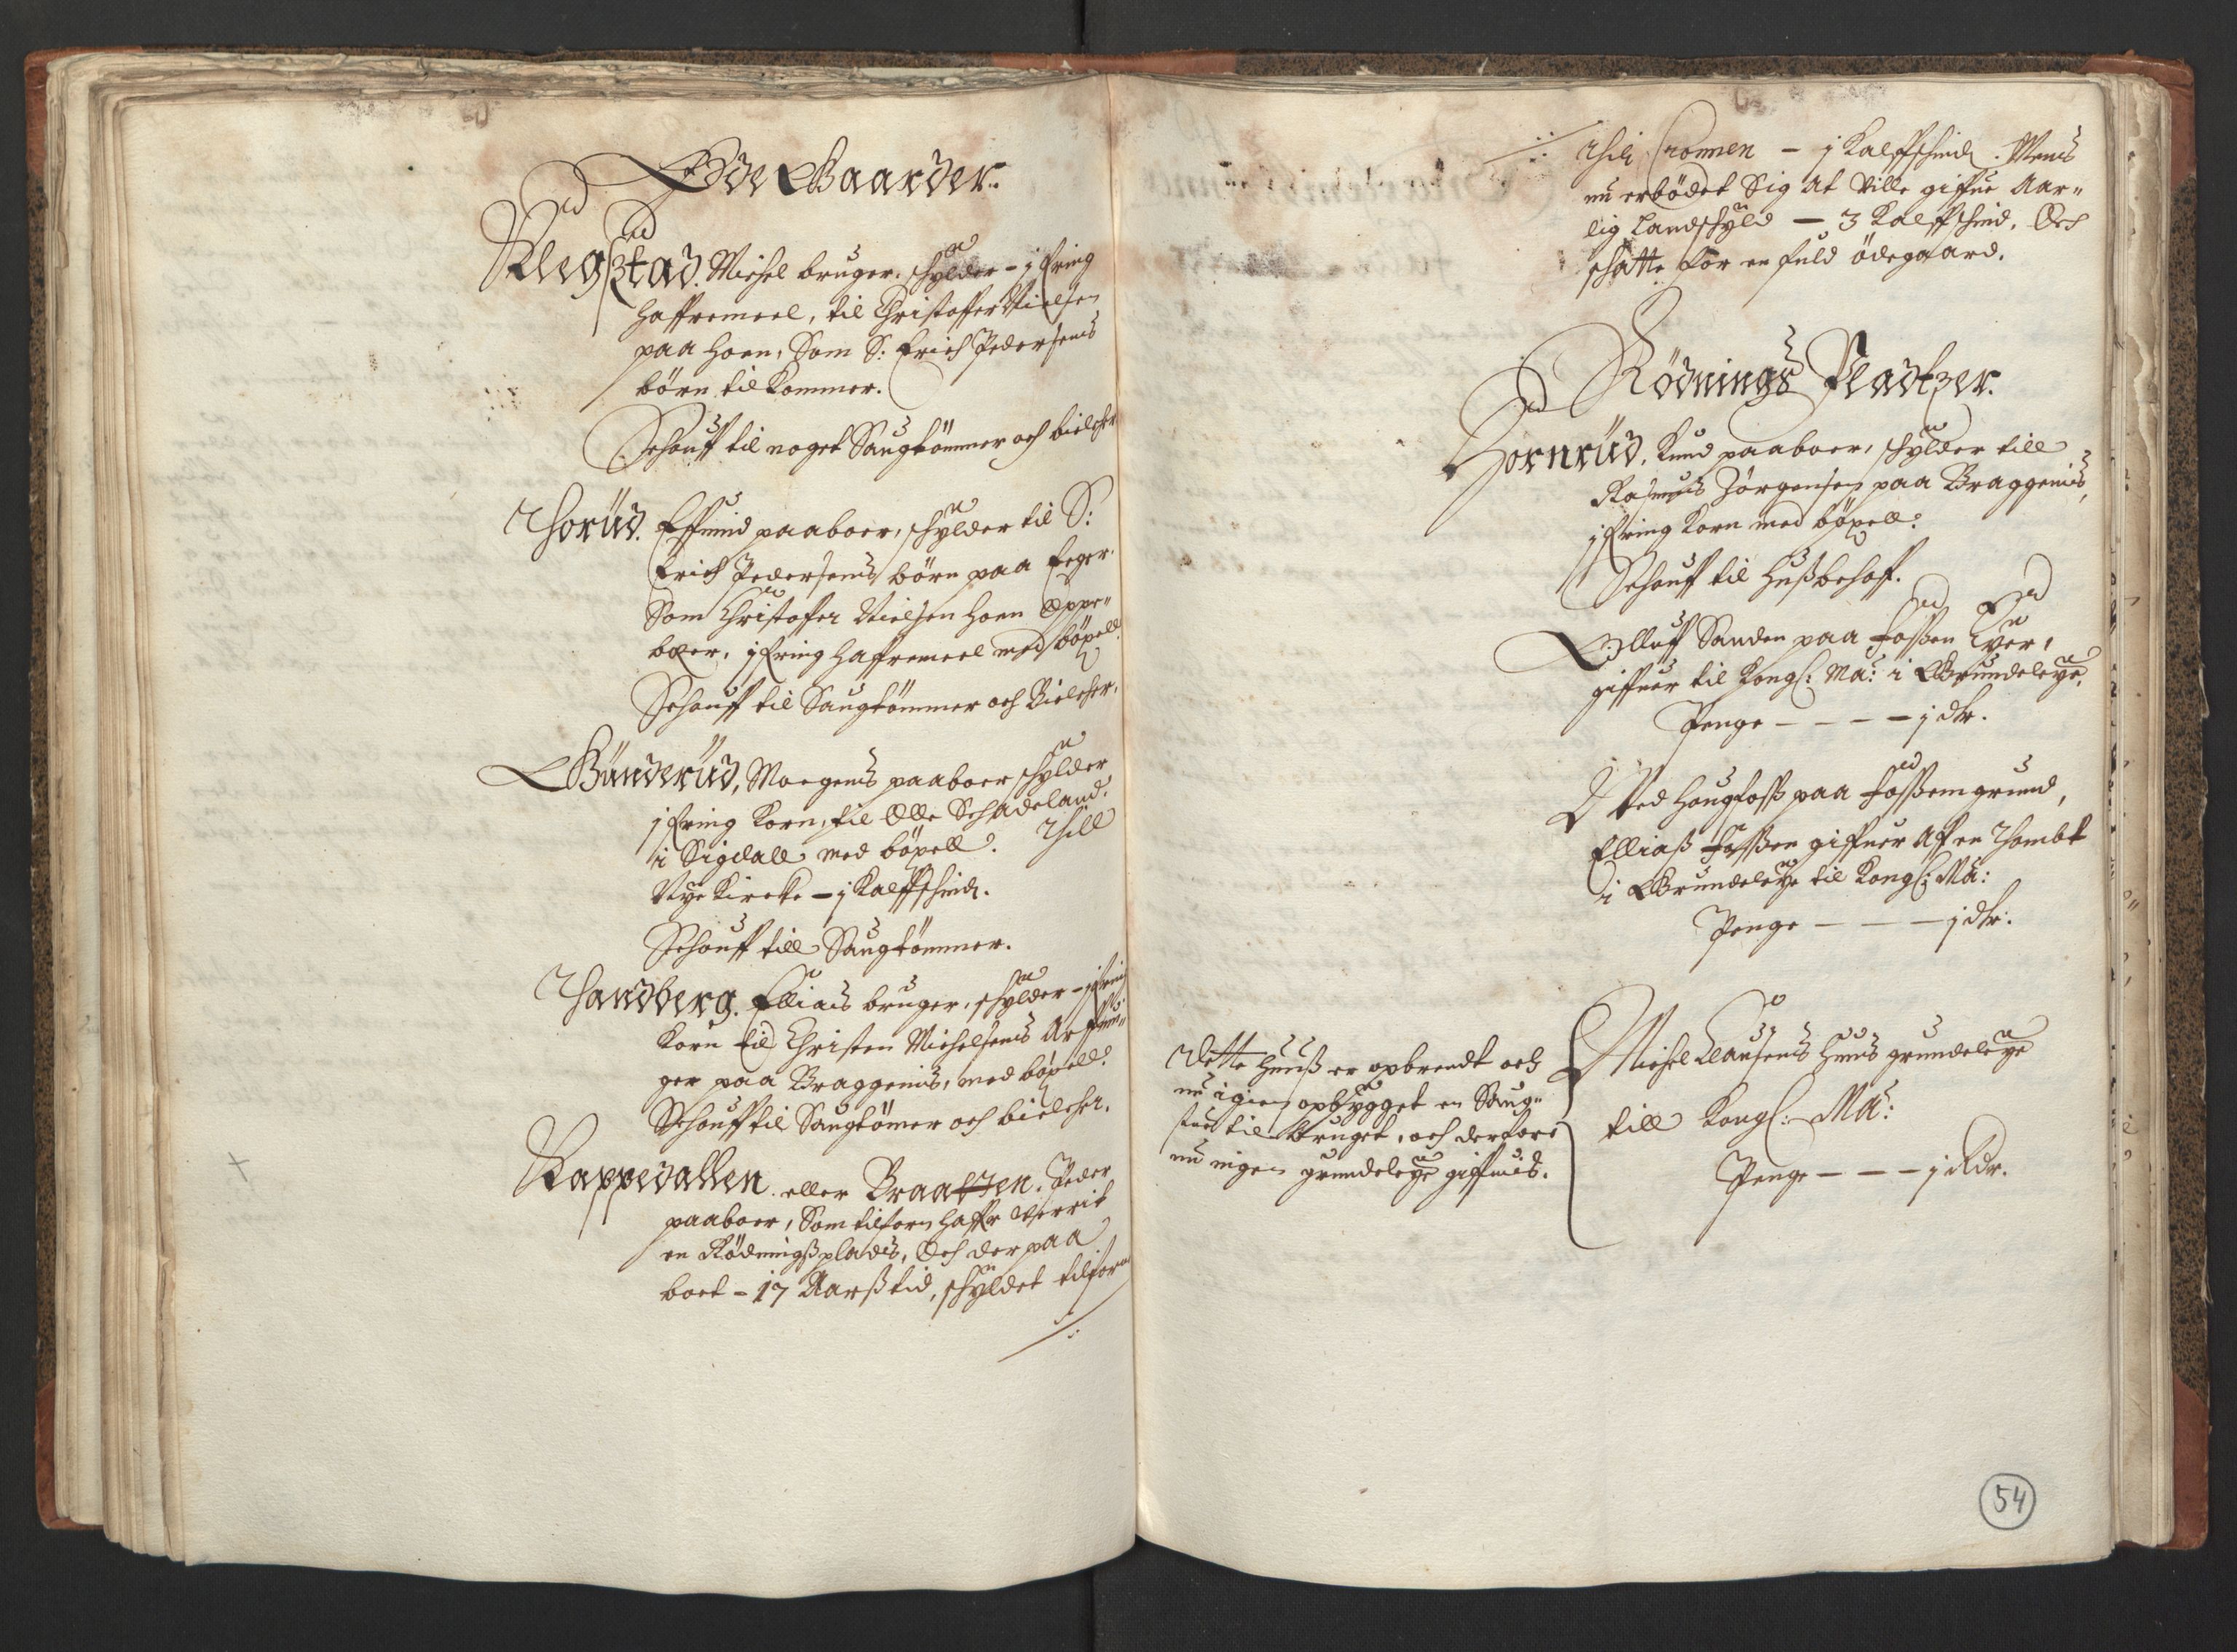 Øde Gaarder.
Klegstad. Michel bruger, schylder - j fring
haffremeel, til Christoffer Nielsen
paa Hoen, Som S: Erich Pedersens
børn til kommer.
Schouff til noget Saugtømmer och bielcher
Thorud. Effuind paaboer, schylder til S:
Erich Pedersens børn paa Eeger,
Som Christoffer Nielsen Hoen
j fring haffremeel med bøxell.
Schouff til Saugtømmer och Bielcher.
Gunderud, Mogens paaboer schylder
j fring Korn, til Olle Schadeland,
i Sigdall med bøxell. Thill
Nye Kircke - j Kalffschind.
Schouff till Saugtømmer.
Thandberg. Elliais bruger, schylder - j fring
Korn til Christen Michelsens Arffuin-
ger paa Braggenis, med bøxell.
Schouff til Saugtømer och bielcher.
Kappedallen. eller Braatzen. Peder
paaboer, Som tilforn haffr verrit
en Rødningsplads, Och der paa
boet - 17 Aarß tid, schyldet tilforn
thil Cronnen - j Kalffschind. Mens
nu erbødet Sig at ville giffue Aar-
lig Landschyld - 3 Kalffschind. Och
schatte for en fuld ødegaard.
Rødnings Pladtzer.
Hornrud, Knud paaboer, schylder till
Rasmus Jørgensen paa Braggenis,
j fring Korn med bøxell.
Schouff til Hußbehoff.
Olluff Sanden paa Foßen
giffuer til Kongl: Ma: i Grundeleye,
Penge - - - - j dlr.
Ved Hougfoß paa Foßem grund,
Elliaß Foßen giffuer Aff en Thombt
i Grundeleye til Kongl: Ma:
Penge - - - j dlr.
Dette Huuß er opbrendt och
nu igien opbygget en Saug-
stue til bruget, och derfore
nu ingen grundeleye giffuis.
Michel Clausens Huus grundeleye
till Kongl: Ma:
Penge - - - j Rdr.
54